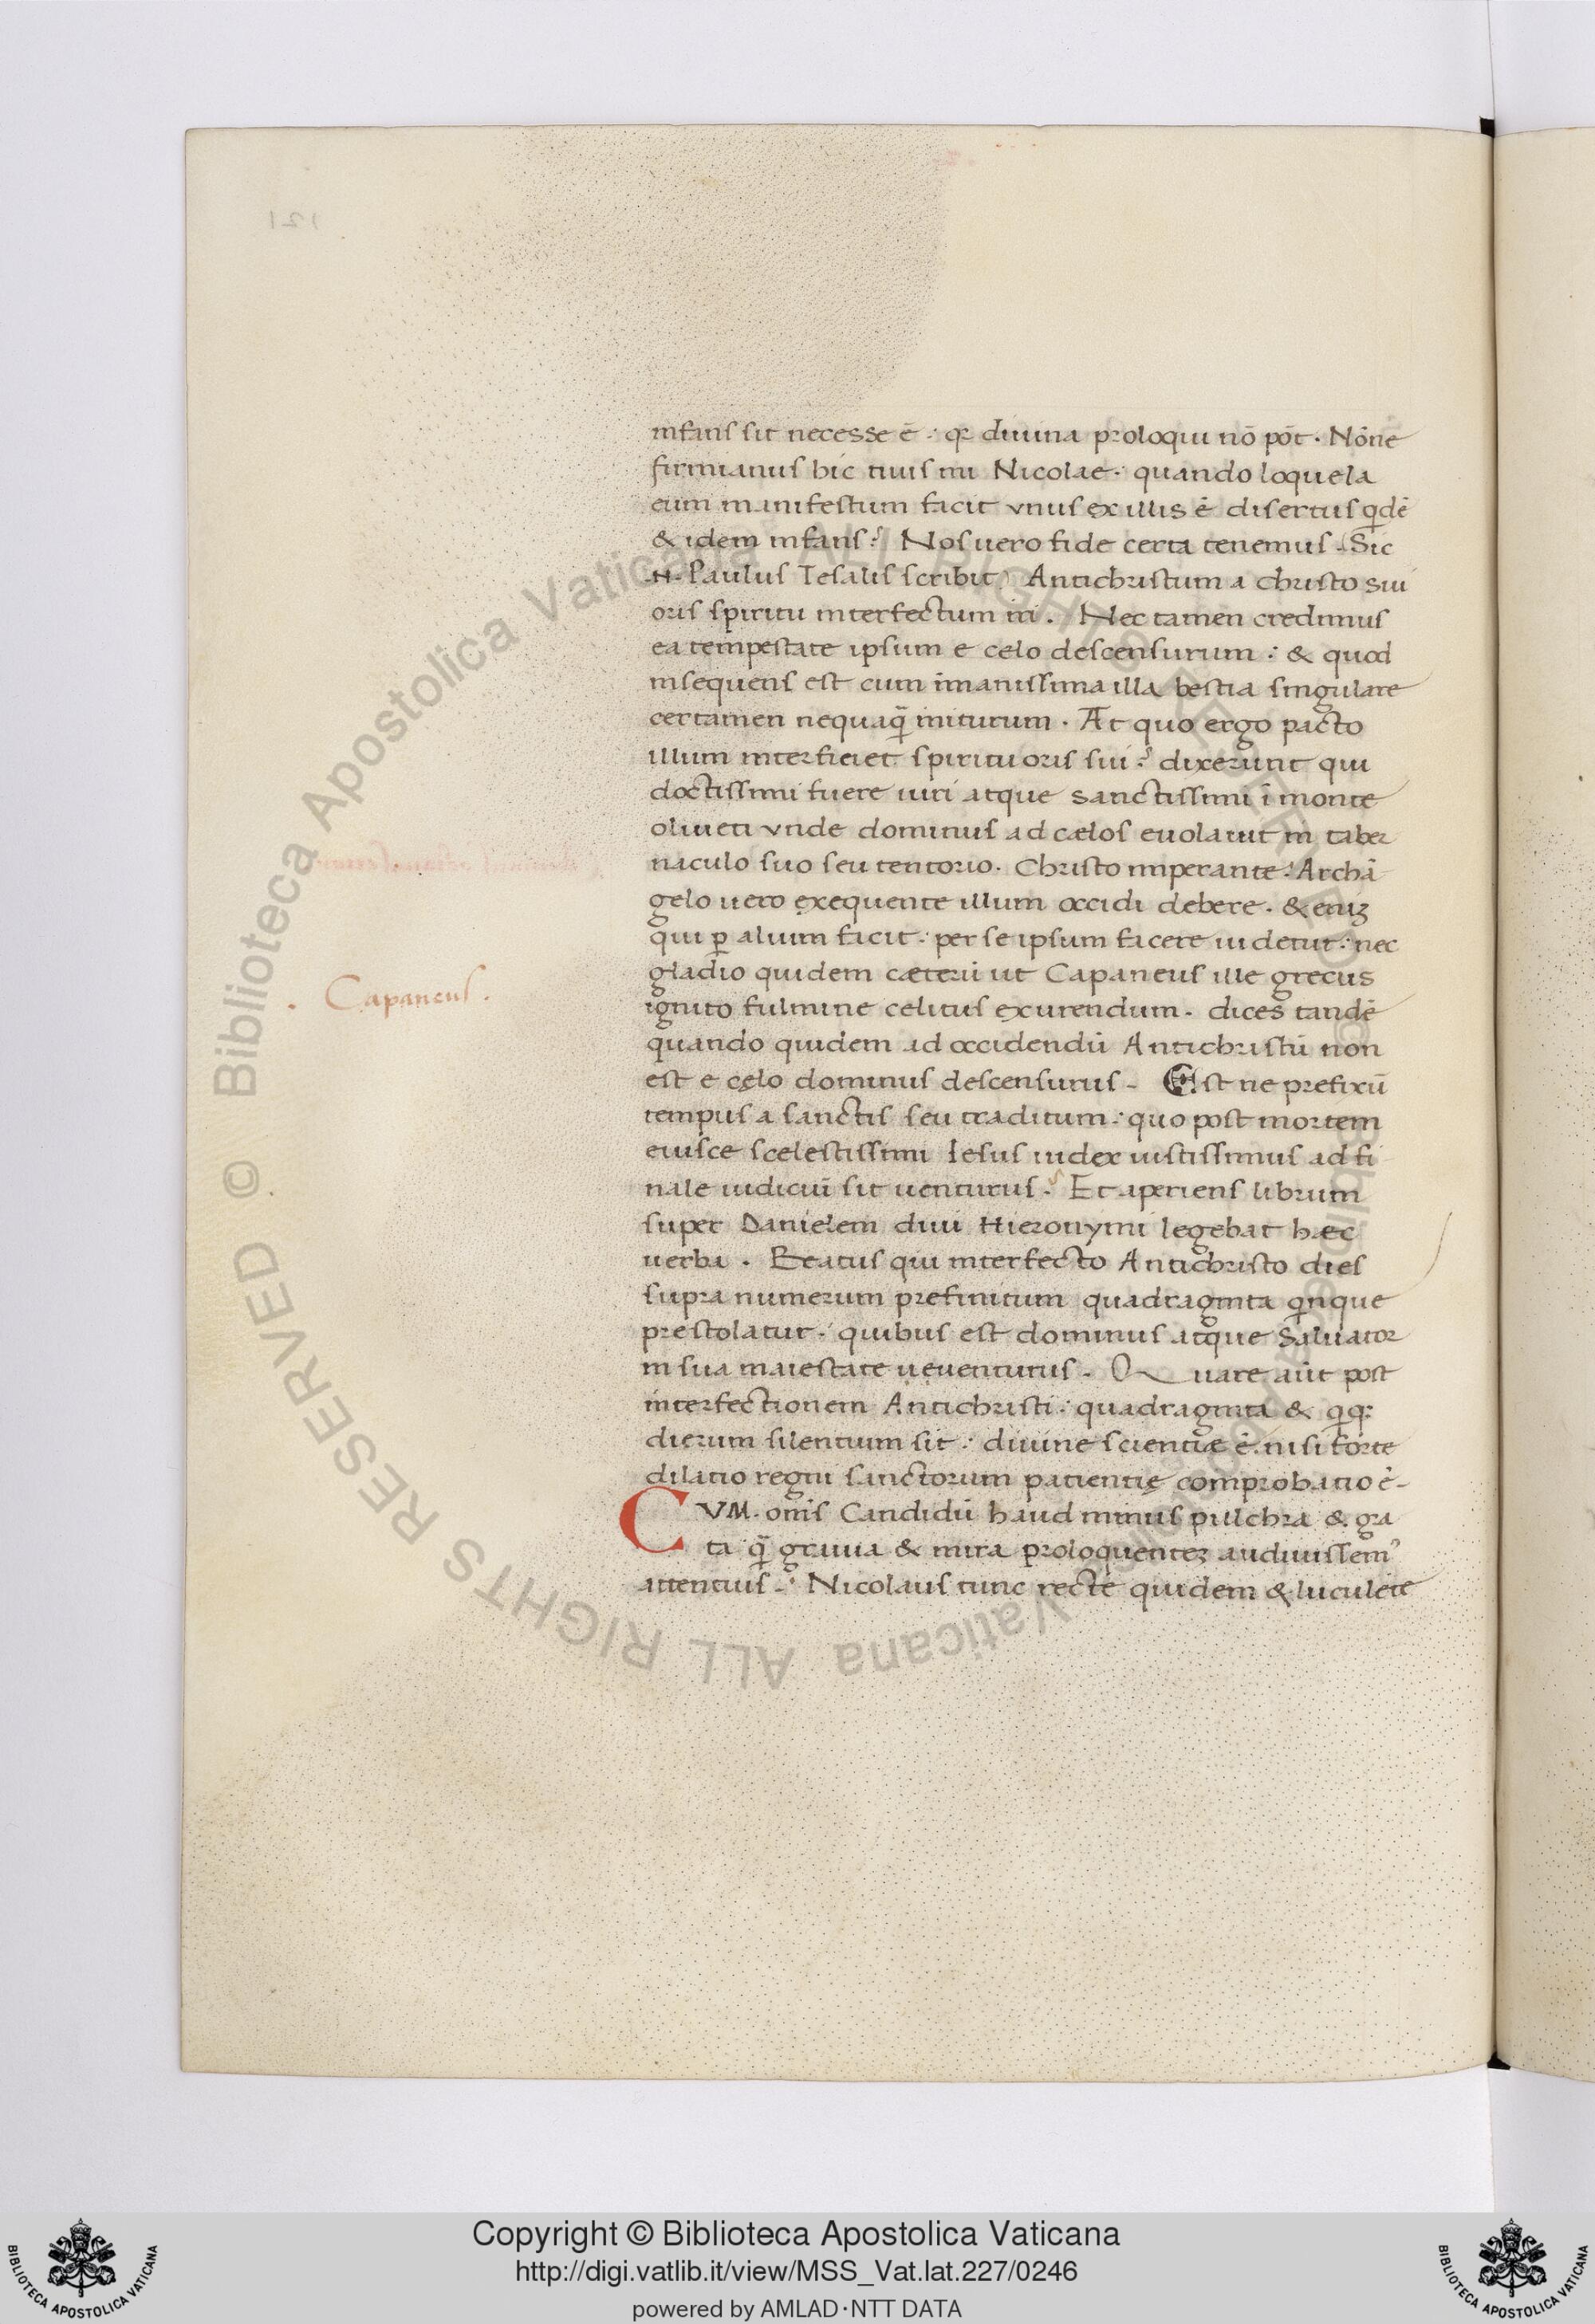 infans sit necesse ē : qꝛ diuina proloqui nō pōt . Nōne
firmianus hic tuus mi Nicolae : quando loquela
eum manifestum facit vnus ex illis ē disertus qͥdē
& idem infans ? Nos uero fide certa tenemus . (Sic
.n. Paulus Tesalis scribit) Antichristum a christo sui
oris spiritu interfectum iri . Nec tamen credimus
ea tempestate ipsum e celo descensurum : & quod
insequens est cum īmanissima illa bestia singulare
certamen nequaq̄ initurum . At quo ergo pacto
illum interficiet spiritu oris sui ? dixerunt qui
doctissimi fuere uiri atque sanctissimi ī monte
oliueti vnde dominus ad cælos euolauit in taber
naculo suo seu tentorio . Christo imperante : Archā
gelo uero exequente illum occidi debere . & eniꝫ
qui ꝑ alium facit : per se ipsum facere uidetur : nec
gladio quidem cæterū ut Capaneus ille grecus
ignito fulmine celitus exurendum . dices tandē
quando quidem ad occidendū Antichristū non
est e cęlo dominus descensurus . Est ne prefixū
tempus a sanctis seu traditum : quo post mortem
eiusce scelestissimi Iesus iudex iustissimus ad fi
nale iudiciū sit uenturus ? Et aperiens librum
super Danielem diui Hieronymi legebat hæc
uerba . Beatus qui interfecto Antichristo dies
supra numerum prefinitum quadraginta qͥnque
prestolatur : quibus est dominus atque Saluator
in sua maiestate ueuenturus . Quare aūt post
interfectionem Antichristi : quadraginta & qͥqꝫ
dierum silentium sit : diuine scientiæ ē . nisi forte
dilatio regni sanctorum patientię comprobatio ē .
CVM . onīs Candidū haud minus pulchra & gra
ta q̄ grauia & mira proloquenteꝫ audiuissemꝰ
attentius . Nicolaus tunc recte quidem & luculēte
. Capaneus .
Copyright © Biblioteca Apostolica Vaticana
http://digi.vatlib.it/view/MSS_Vat.lat.227/0246
powered by AMLAD·NTT DATA
BIBLIOTECA APOSTOLICA VATICANA
BIBLIOTECA APOSTOLICA VATICANA
© Biblioteca Apostolica Vaticana ALL RIGHTS RESERVED
© Biblioteca Apostolica Vaticana ALL RIGHTS RESERVED
121